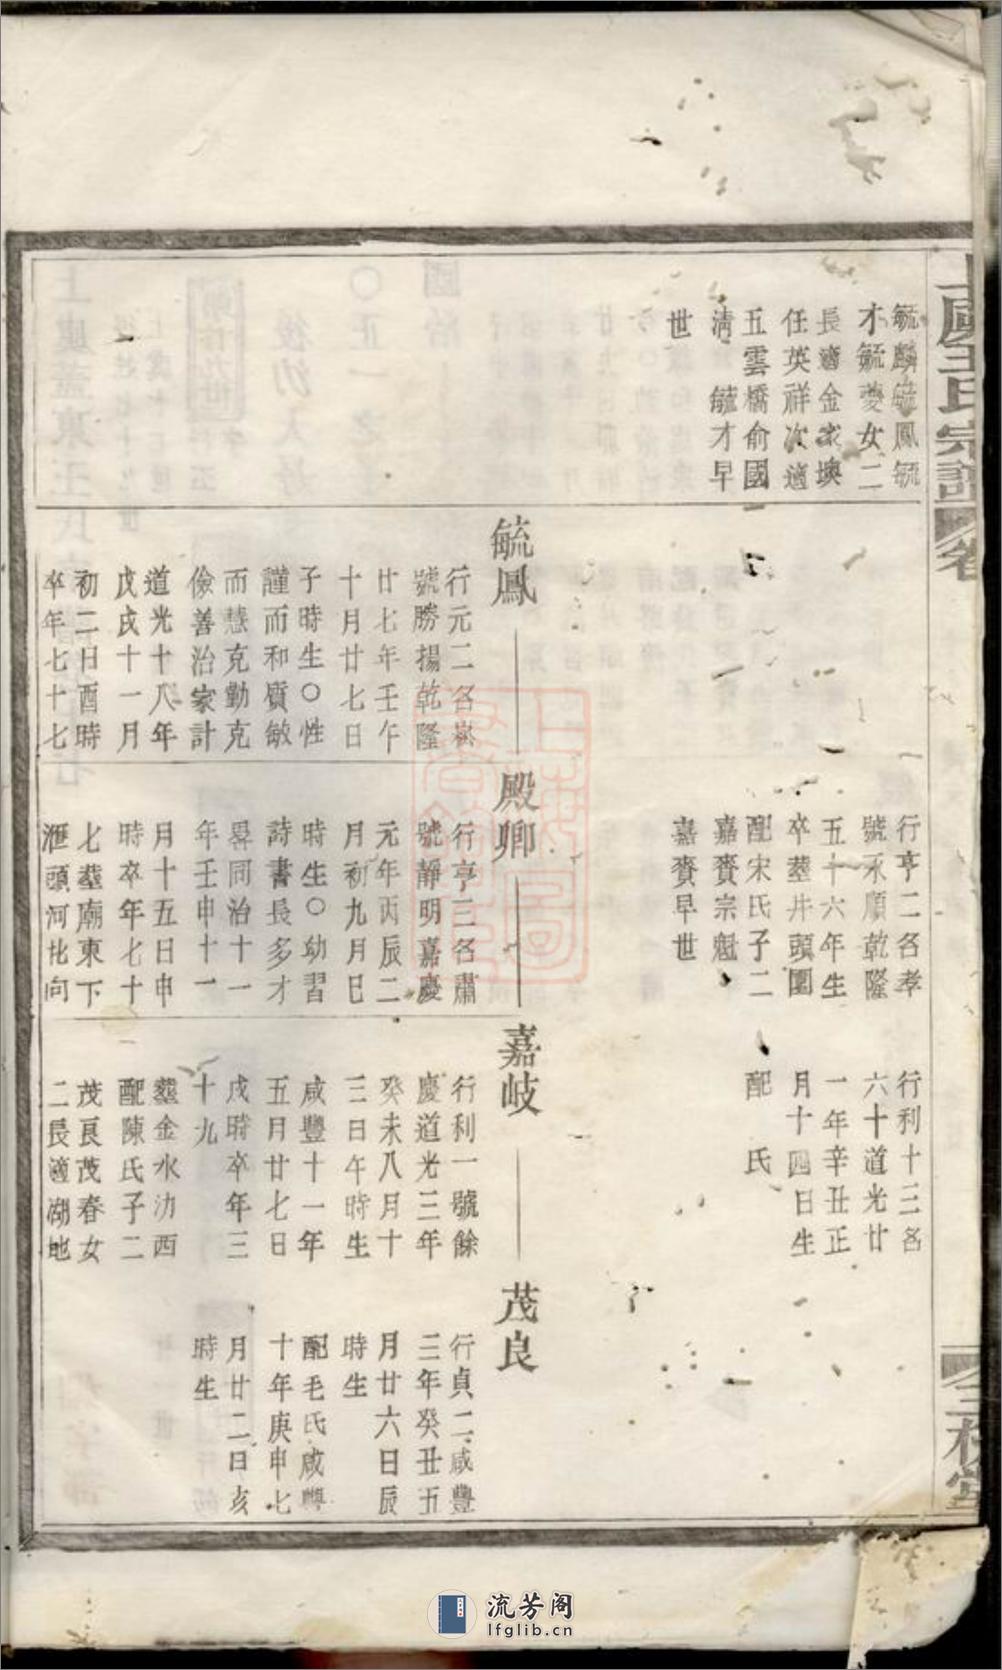 上虞王氏宗譜
卷
三槐堂
毓麟毓鳳毓
才毓夔女二
長適金家墺
任英祥次適
五雲橋俞國
清　毓才早
世
行亨二名孝
號永順乾隆
五十六年生
卒塟井頭園
配宋氏子二
嘉賚宗魁
嘉賚早世
行利十三名
六十道光廿
一年辛丑正
月十四日生
配　氏
毓鳳
行元二名崧
號勝揚乾隆
廿七年壬午
十月廿七日
子時生〇性
謹而和質敏
而慧克勤克
儉善治家計
道光十八年
戊戌十一月
初二日酉時
卒年七十七
殿卿
行亨三名肅
號靜明嘉慶
元年丙辰二
月初九月巳
時生〇幼習
詩書長多才
畧同治十一
年壬申十一
月十五日申
時卒年七十
七塟廟東下
滙頭河北向
嘉岐
行利一號餘
慶道光三年
癸未八月十
三日午時生
咸豐十一年
五月廿七日
戌時卒年三
十九
塟金水氻西
配陳氏子二
茂良茂春女
二長適湖地
茂良
行貞二咸豐
三年癸丑五
月廿六日辰
時生
配毛氏咸豐
十年庚申七
月廿二日亥
時生
流芳阁
lfglib.cn